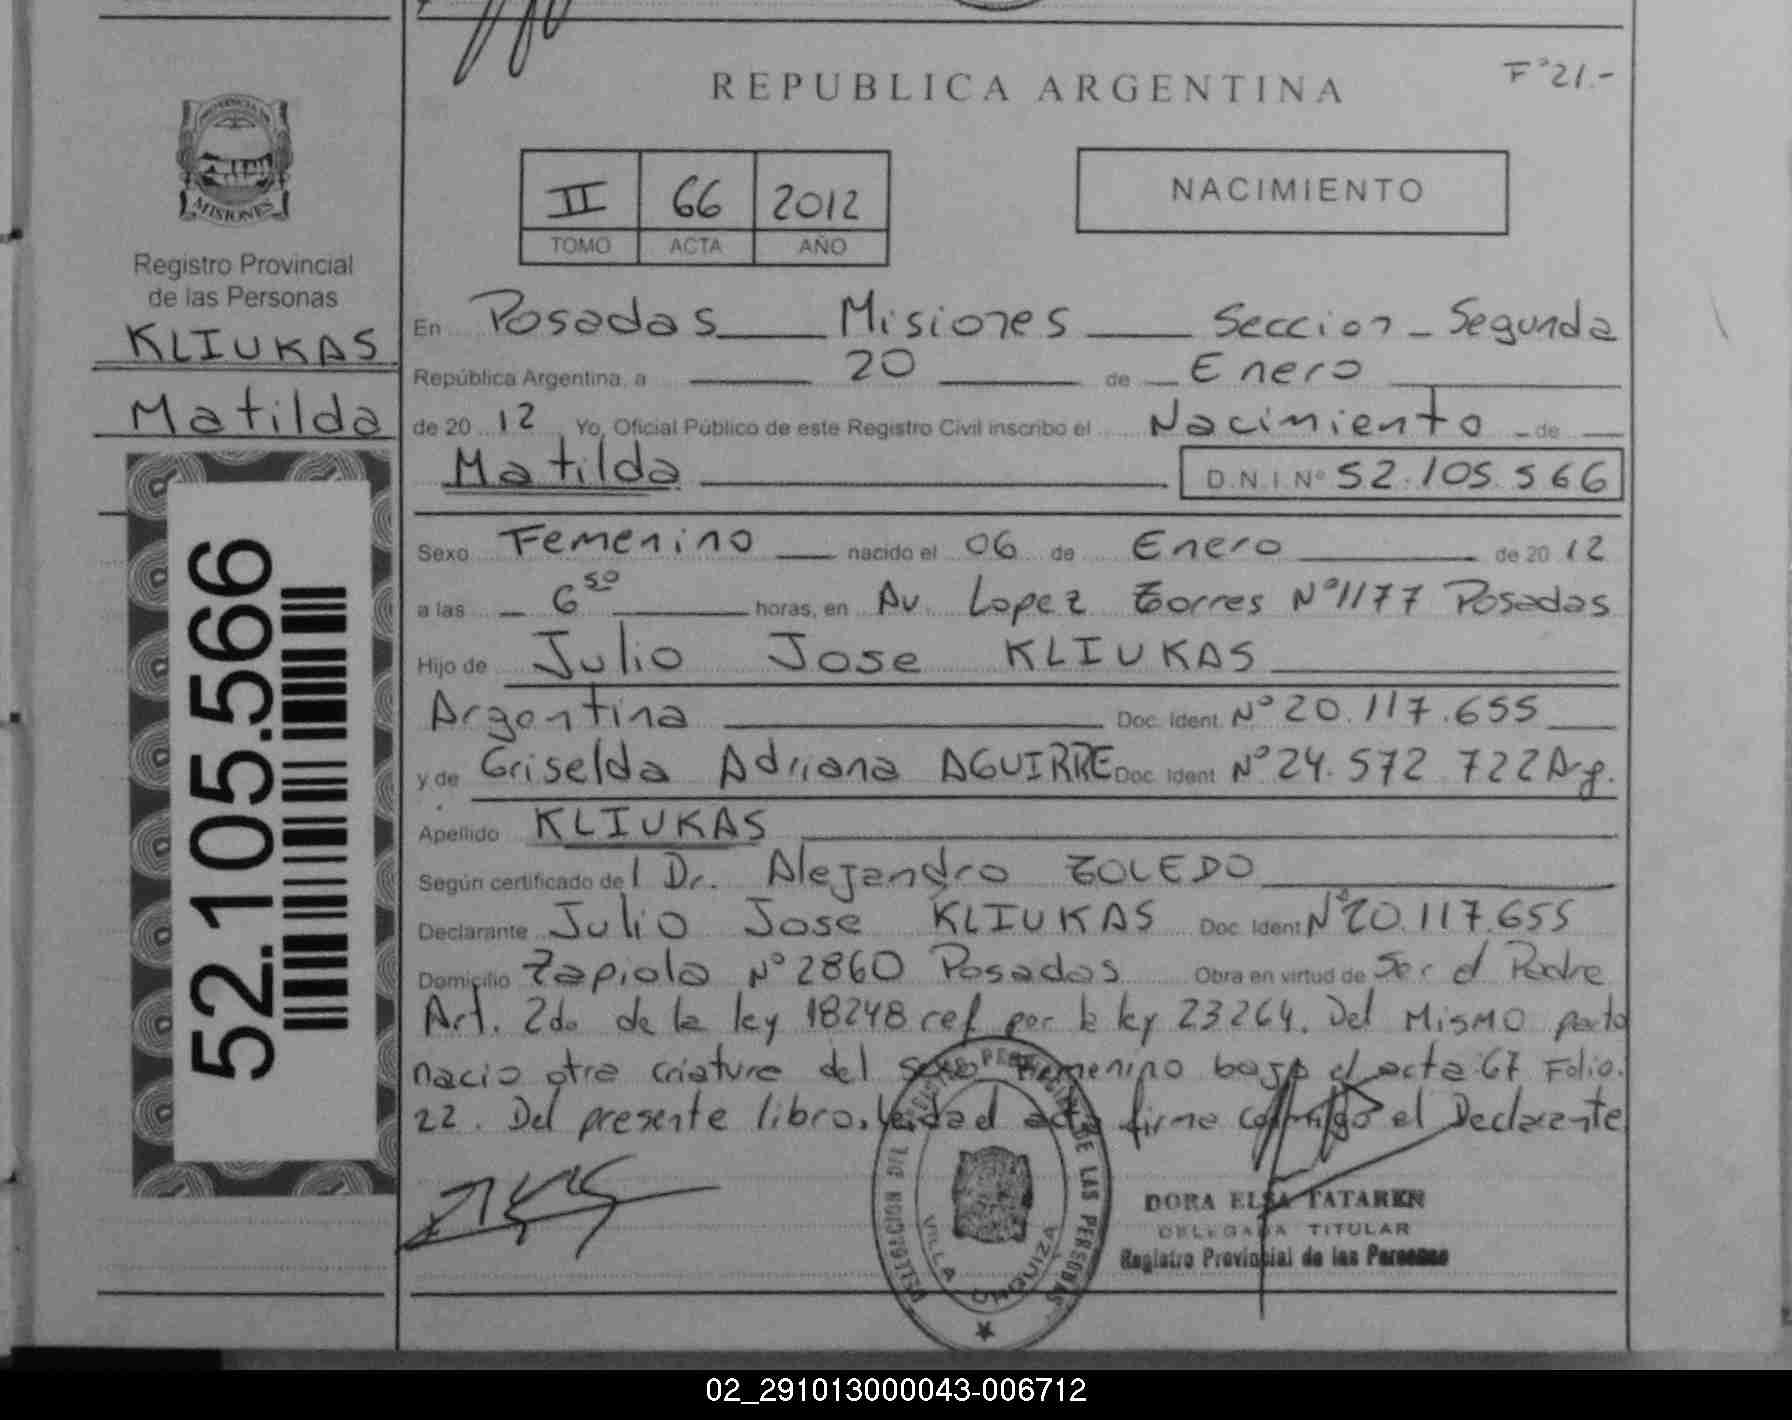 REPUBLICA ARGENTINA
Fº 21.-
PROVINCIA DE
MISIONES
Registro Provincial
de las Personas
KLIUKAS
Matilda
52.105.566
II 66 2012
TOMO ACTA AÑO
NACIMIENTO
En Posadas Misiones Seccion - Segunda
República Argentina, a 20 de Enero
de 20 12 Yo, Oficial Público de este Registro Civil inscribo el Nacimiento de
Matilda D.N.I. Nº 52.105.566
Sexo Femenino nacido el 06 de Enero de 20 12
a las 6 50 horas, en Av. Lopez Torres Nº 1177 Posadas
Hijo de Julio Jose KLIUKAS
Argentina Doc. Ident. Nº 20.117.655
y de Griselda Adriana AGUIRRE Doc. Ident. Nº 24.572 722 Arg.
Apellido KLIUKAS
Según certificado de l Dr. Alejandro TOLEDO
Declarante Julio Jose KLIUKAS Doc. Ident Nº 20.117.655
Domicilio Zapiola Nº 2860 Posadas Obra en virtud de Ser el Padre
Art. 2do de la ley 18248 ref por la ley 23264. Del Mismo parto
nacio otra criatura del sexo Femenino bajo el acta 67 Folio.
22. Del presente libro. Leida el acta firma conmigo el Declarante
DELEGACION DEL REGISTRO PROVINCIAL DE LAS PERSONAS
VILLA URQUIZA
DORA ELSA TATAREN
DELEGADA TITULAR
Registro Provincial de las Personas
02_291013000043-006712